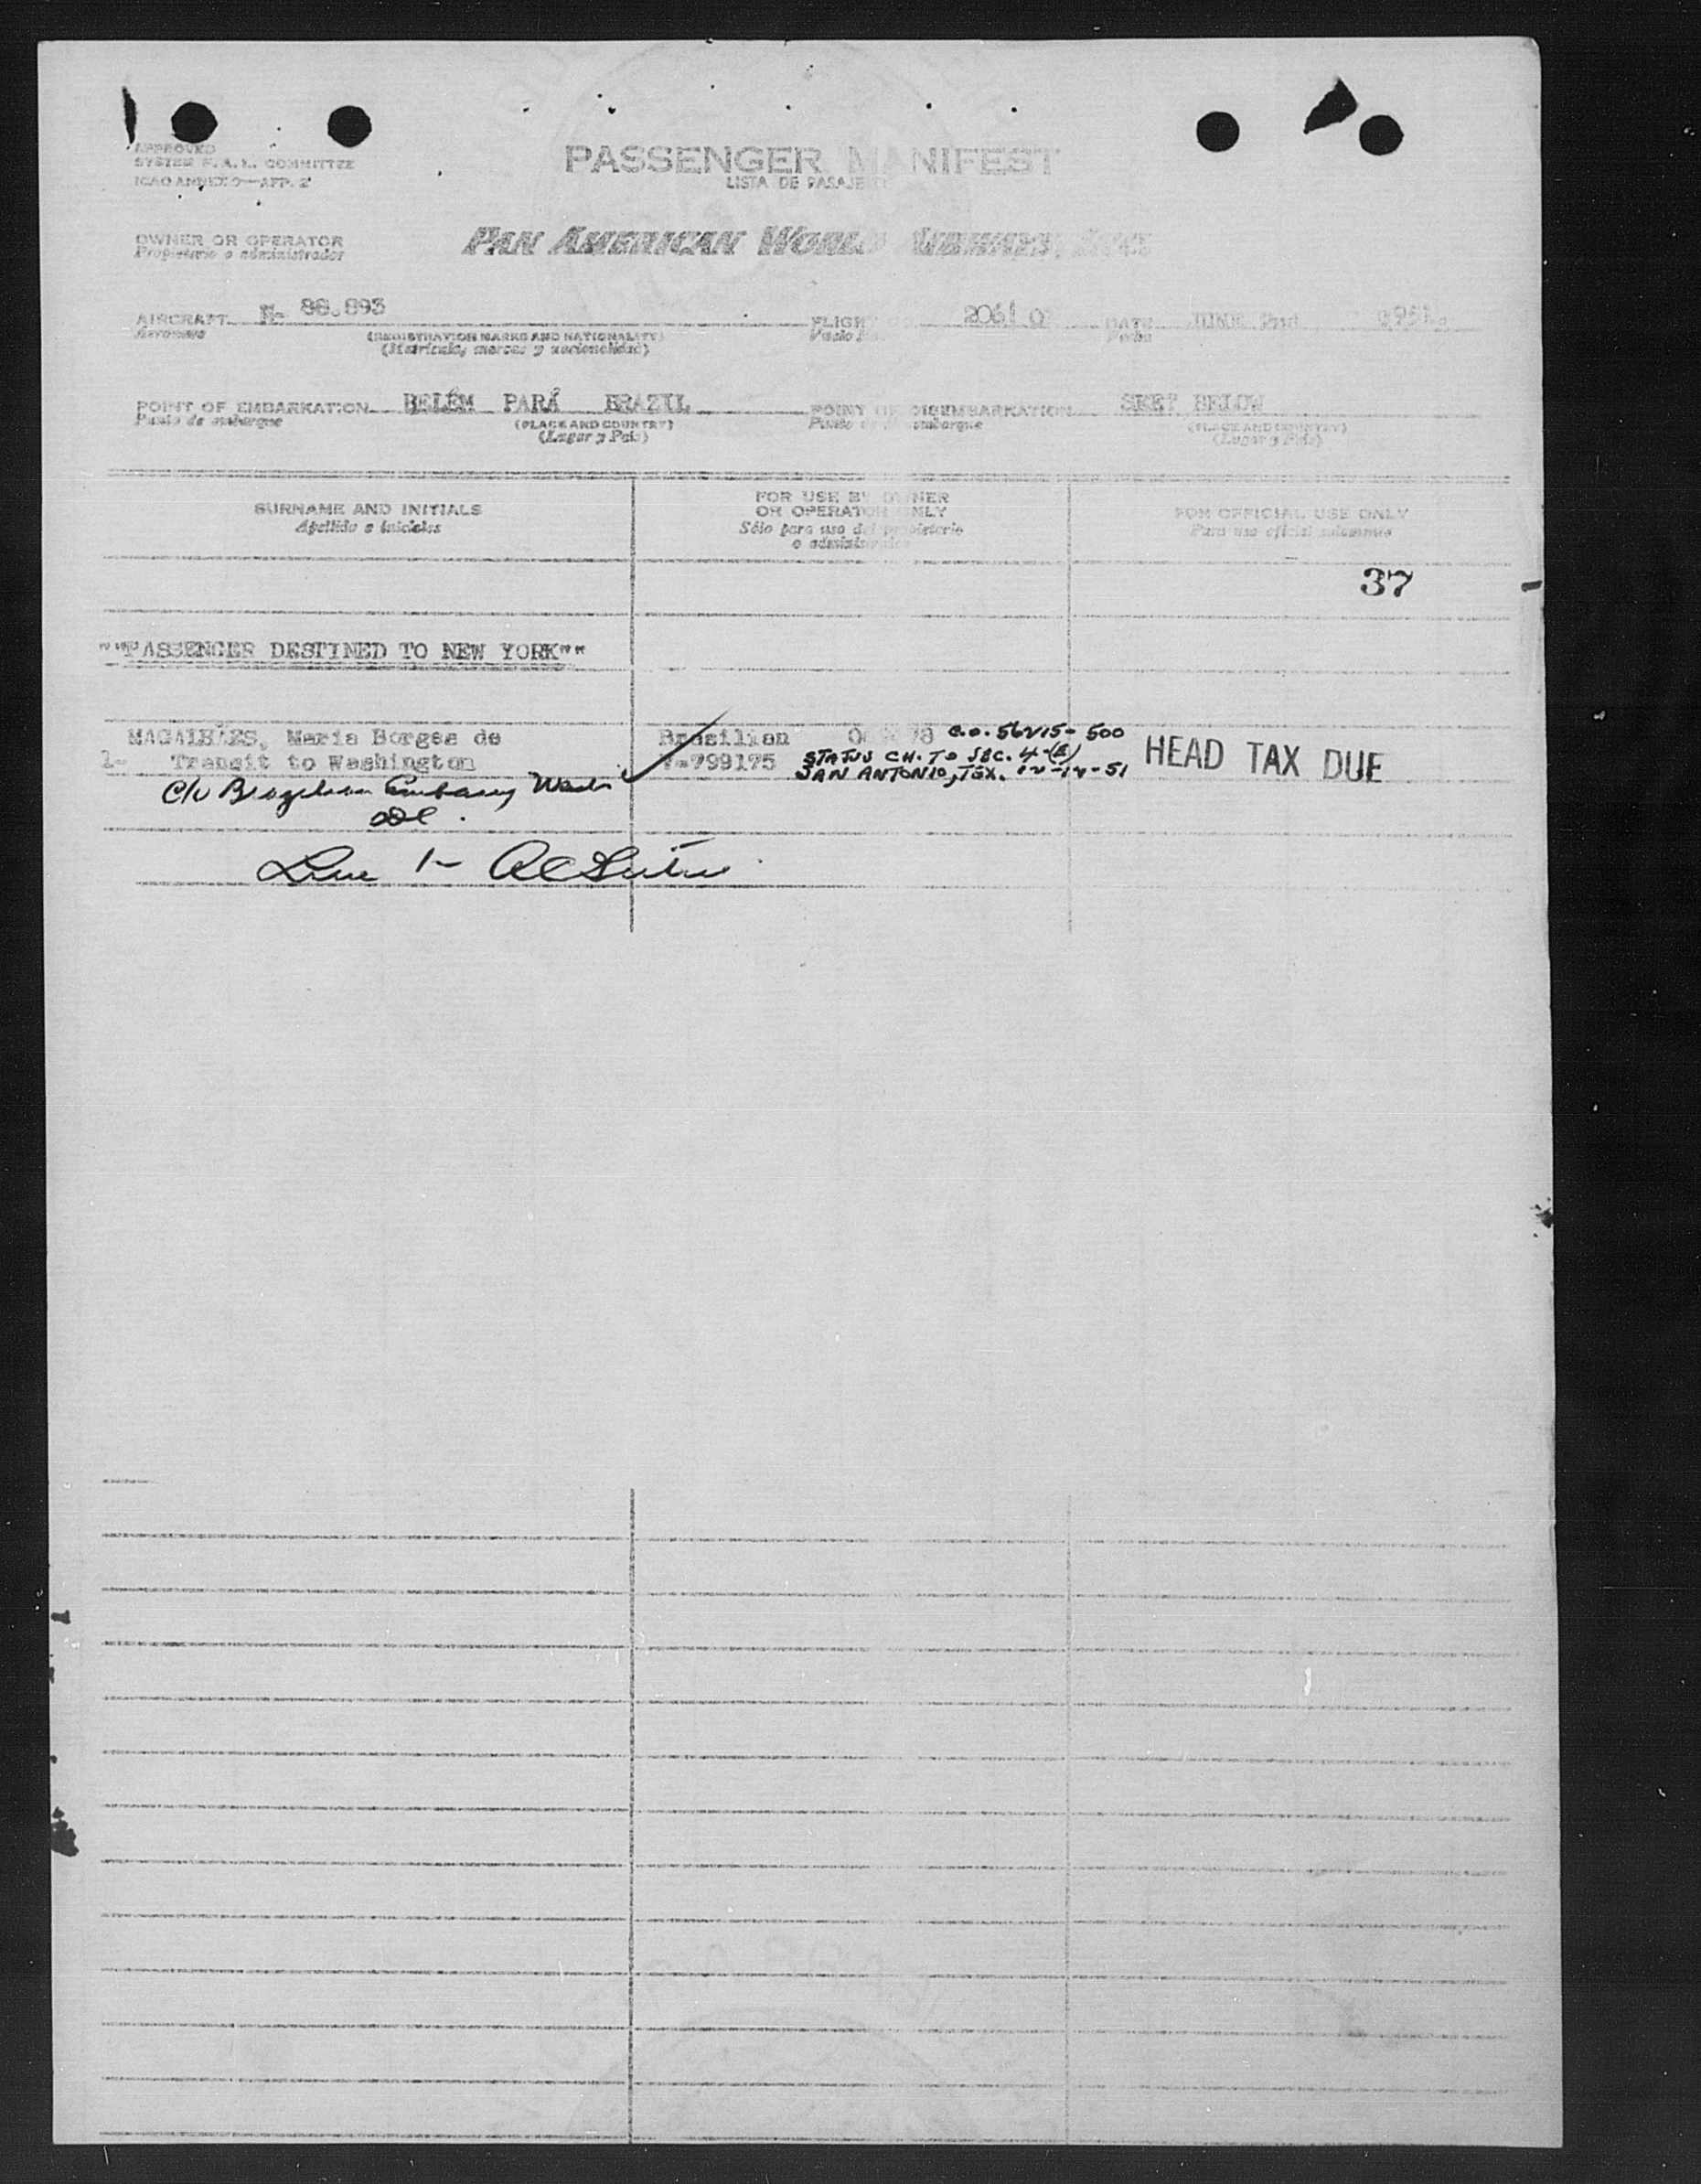 APPROVED
SYSTEM F.A.L. COMMITTEE
ICAO ANNEX 9—APP. 2
PASSENGER MANIFEST
LISTA DE PASAJE
OWNER OR OPERATOR
Propietario o administrador
PAN AMERICAN WORL AIRWAYS, INC.
AIRCRAFT N- 88.893 FLIGH DATE JUNE
Aeronave
(REGISTRATION MARKS AND NATIONALITY)
(Matrícula, marcas y nacionalidad)
Vuelo
Fecha
POINT OF EMBARKATION BELÉM PARÁ BRAZIL POINT OF DISEMBARKATION BELOW
Punto de embarque
(PLACE AND COUNTRY)
(Lugar y País)
Punto de embarque
(PLACE AND COUNTRY)
(Lugar y País)
SURNAME AND INITIALS
Apellido e iniciales
FOR USE BY OWNER
OR OPERATOR ONLY
Sólo para uso del propietario
o administrador
FOR OFFICIAL USE ONLY
Para uso oficial solamente
37
""PASSENGER DESTINED TO NEW YORK""
MAGALHÃES, Maria Borges de Brasilian C.O. 56215-500
1- Transit to Washington V-799175 STATUS CH. TO SEC. 4-(E) HEAD TAX DUE
SAN ANTONIO, TEX. 12-12-51
C/o Brazilian Embassy Wash
Line 1-